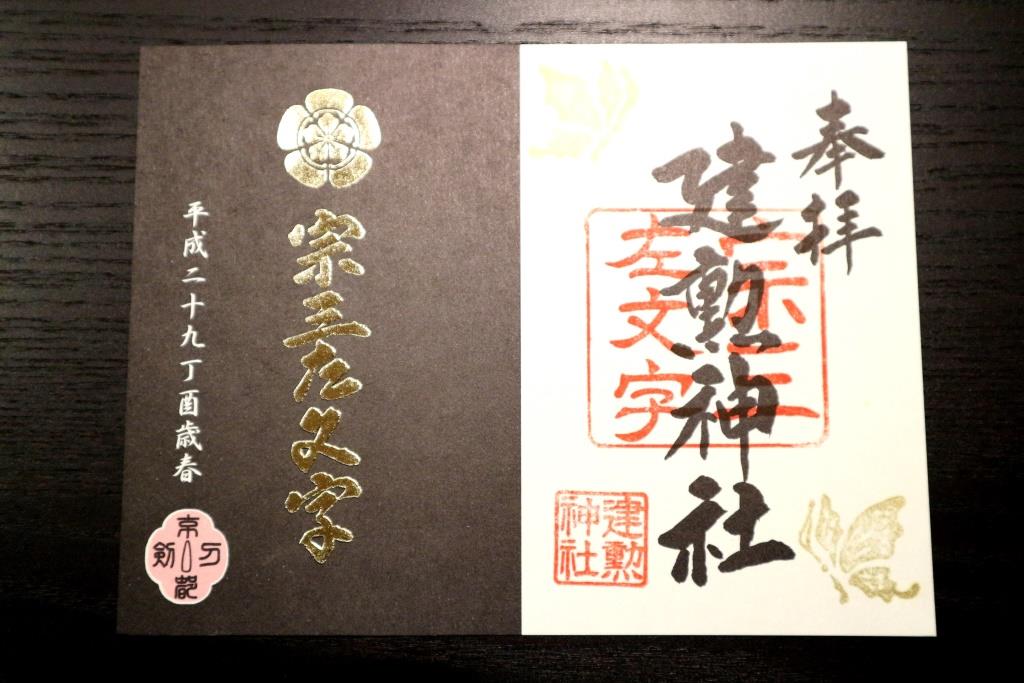 奉拝
建勲神社
宗三
左文字
建勲
神社
宗三左文字
平成二十九丁酉歳春
京都
刀剣